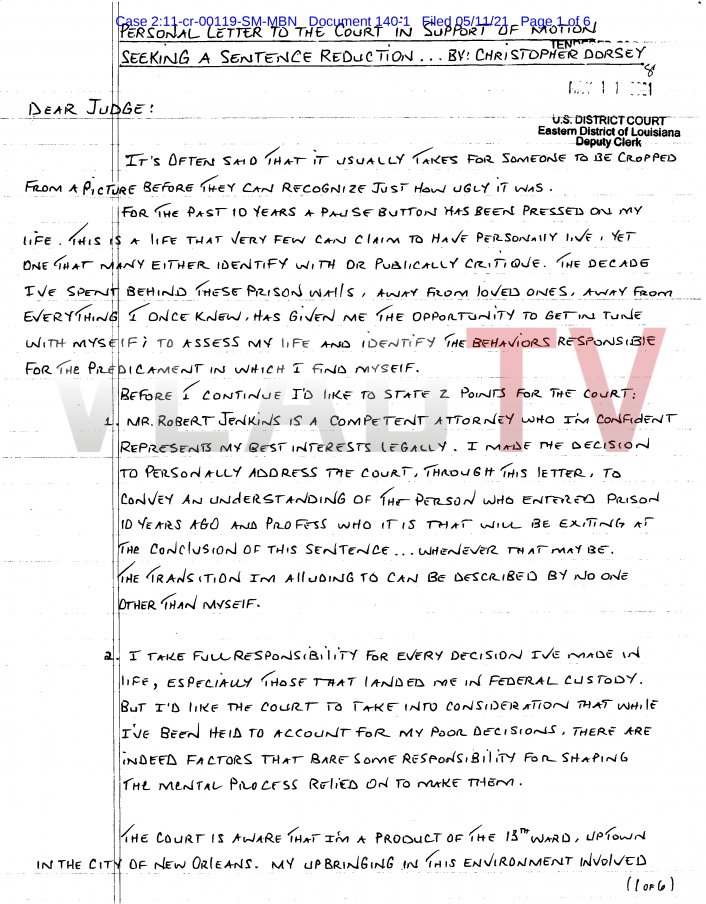 Case 2:11-cr-00119-SM-MBN Document 140-1 Filed 05/11/21 Page 1 of 6
PERSONAL LETTER TO THE COURT IN SUPPORT OF MOTION
SEEKING A SENTENCE REDUCTION... BY: CHRISTOPHER DORSEY
TENDERED
MAY 11 2021
U.S. DISTRICT COURT
Eastern District of Louisiana
Deputy Clerk
DEAR JUDGE:
IT'S OFTEN SAID THAT IT USUALLY TAKES FOR SOMEONE TO BE CROPPED
FROM A PICTURE BEFORE THEY CAN RECOGNIZE JUST HOW UGLY IT WAS.
FOR THE PAST 10 YEARS A PAUSE BUTTON HAS BEEN PRESSED ON MY
LIFE. THIS IS A LIFE THAT VERY FEW CAN CLAIM TO HAVE PERSONALLY LIVE, YET
ONE THAT MANY EITHER IDENTIFY WITH OR PUBLICALLY CRITIQUE. THE DECADE
I'VE SPENT BEHIND THESE PRISON WALLS, AWAY FROM LOVED ONES, AWAY FROM
EVERYTHING I ONCE KNEW, HAS GIVEN ME THE OPPORTUNITY TO GET IN TUNE
WITH MYSELF; TO ASSESS MY LIFE AND IDENTIFY THE BEHAVIORS RESPONSIBLE
FOR THE PREDICAMENT IN WHICH I FIND MYSELF.
BEFORE I CONTINUE I'D LIKE TO STATE 2 POINTS FOR THE COURT:
1. MR. ROBERT JENKINS IS A COMPETENT ATTORNEY WHO I'M CONFIDENT
REPRESENTS MY BEST INTERESTS LEGALLY. I MADE THE DECISION
TO PERSONALLY ADDRESS THE COURT, THROUGH THIS LETTER, TO
CONVEY AN UNDERSTANDING OF THE PERSON WHO ENTERED PRISON
10 YEARS AGO AND PROFESS WHO IT IS THAT WILL BE EXITING AT
THE CONCLUSION OF THIS SENTENCE... WHENEVER THAT MAY BE.
THE TRANSITION I'M ALLUDING TO CAN BE DESCRIBED BY NO ONE
OTHER THAN MYSELF.
2. I TAKE FULL RESPONSIBILITY FOR EVERY DECISION I'VE MADE IN
LIFE, ESPECIALLY THOSE THAT LANDED ME IN FEDERAL CUSTODY.
BUT I'D LIKE THE COURT TO TAKE INTO CONSIDERATION THAT WHILE
I'VE BEEN HELD TO ACCOUNT FOR MY POOR DECISIONS, THERE ARE
INDEED FACTORS THAT BARE SOME RESPONSIBILITY FOR SHAPING
THE MENTAL PROCESS RELIED ON TO MAKE THEM.
THE COURT IS AWARE THAT I'M A PRODUCT OF THE 13TH WARD, UPTOWN
IN THE CITY OF NEW ORLEANS. MY UPBRINGING IN THIS ENVIRONMENT INVOLVED
(1 OF 6)
VLADTV